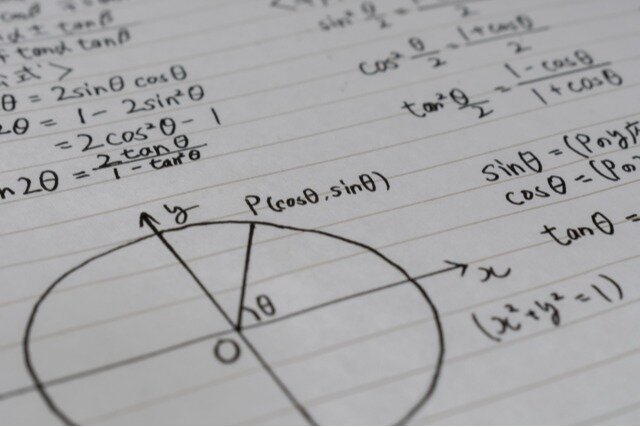 tanα ± tanβ
tanα tanβ
式>
θ = 2sinθ cosθ
2θ = 1 - 2sin²θ
= 2cos²θ - 1
n2θ = 2tanθ / 1 - tan²θ
sin² θ/2 = / 2
cos² θ/2 = 1 + cosθ / 2
tan² θ/2 = 1 - cosθ / 1 + cosθ
sinθ = (Pのy
cosθ = (Pの
tanθ =
y
P(cosθ, sinθ)
x
θ
O
(x² + y² = 1)